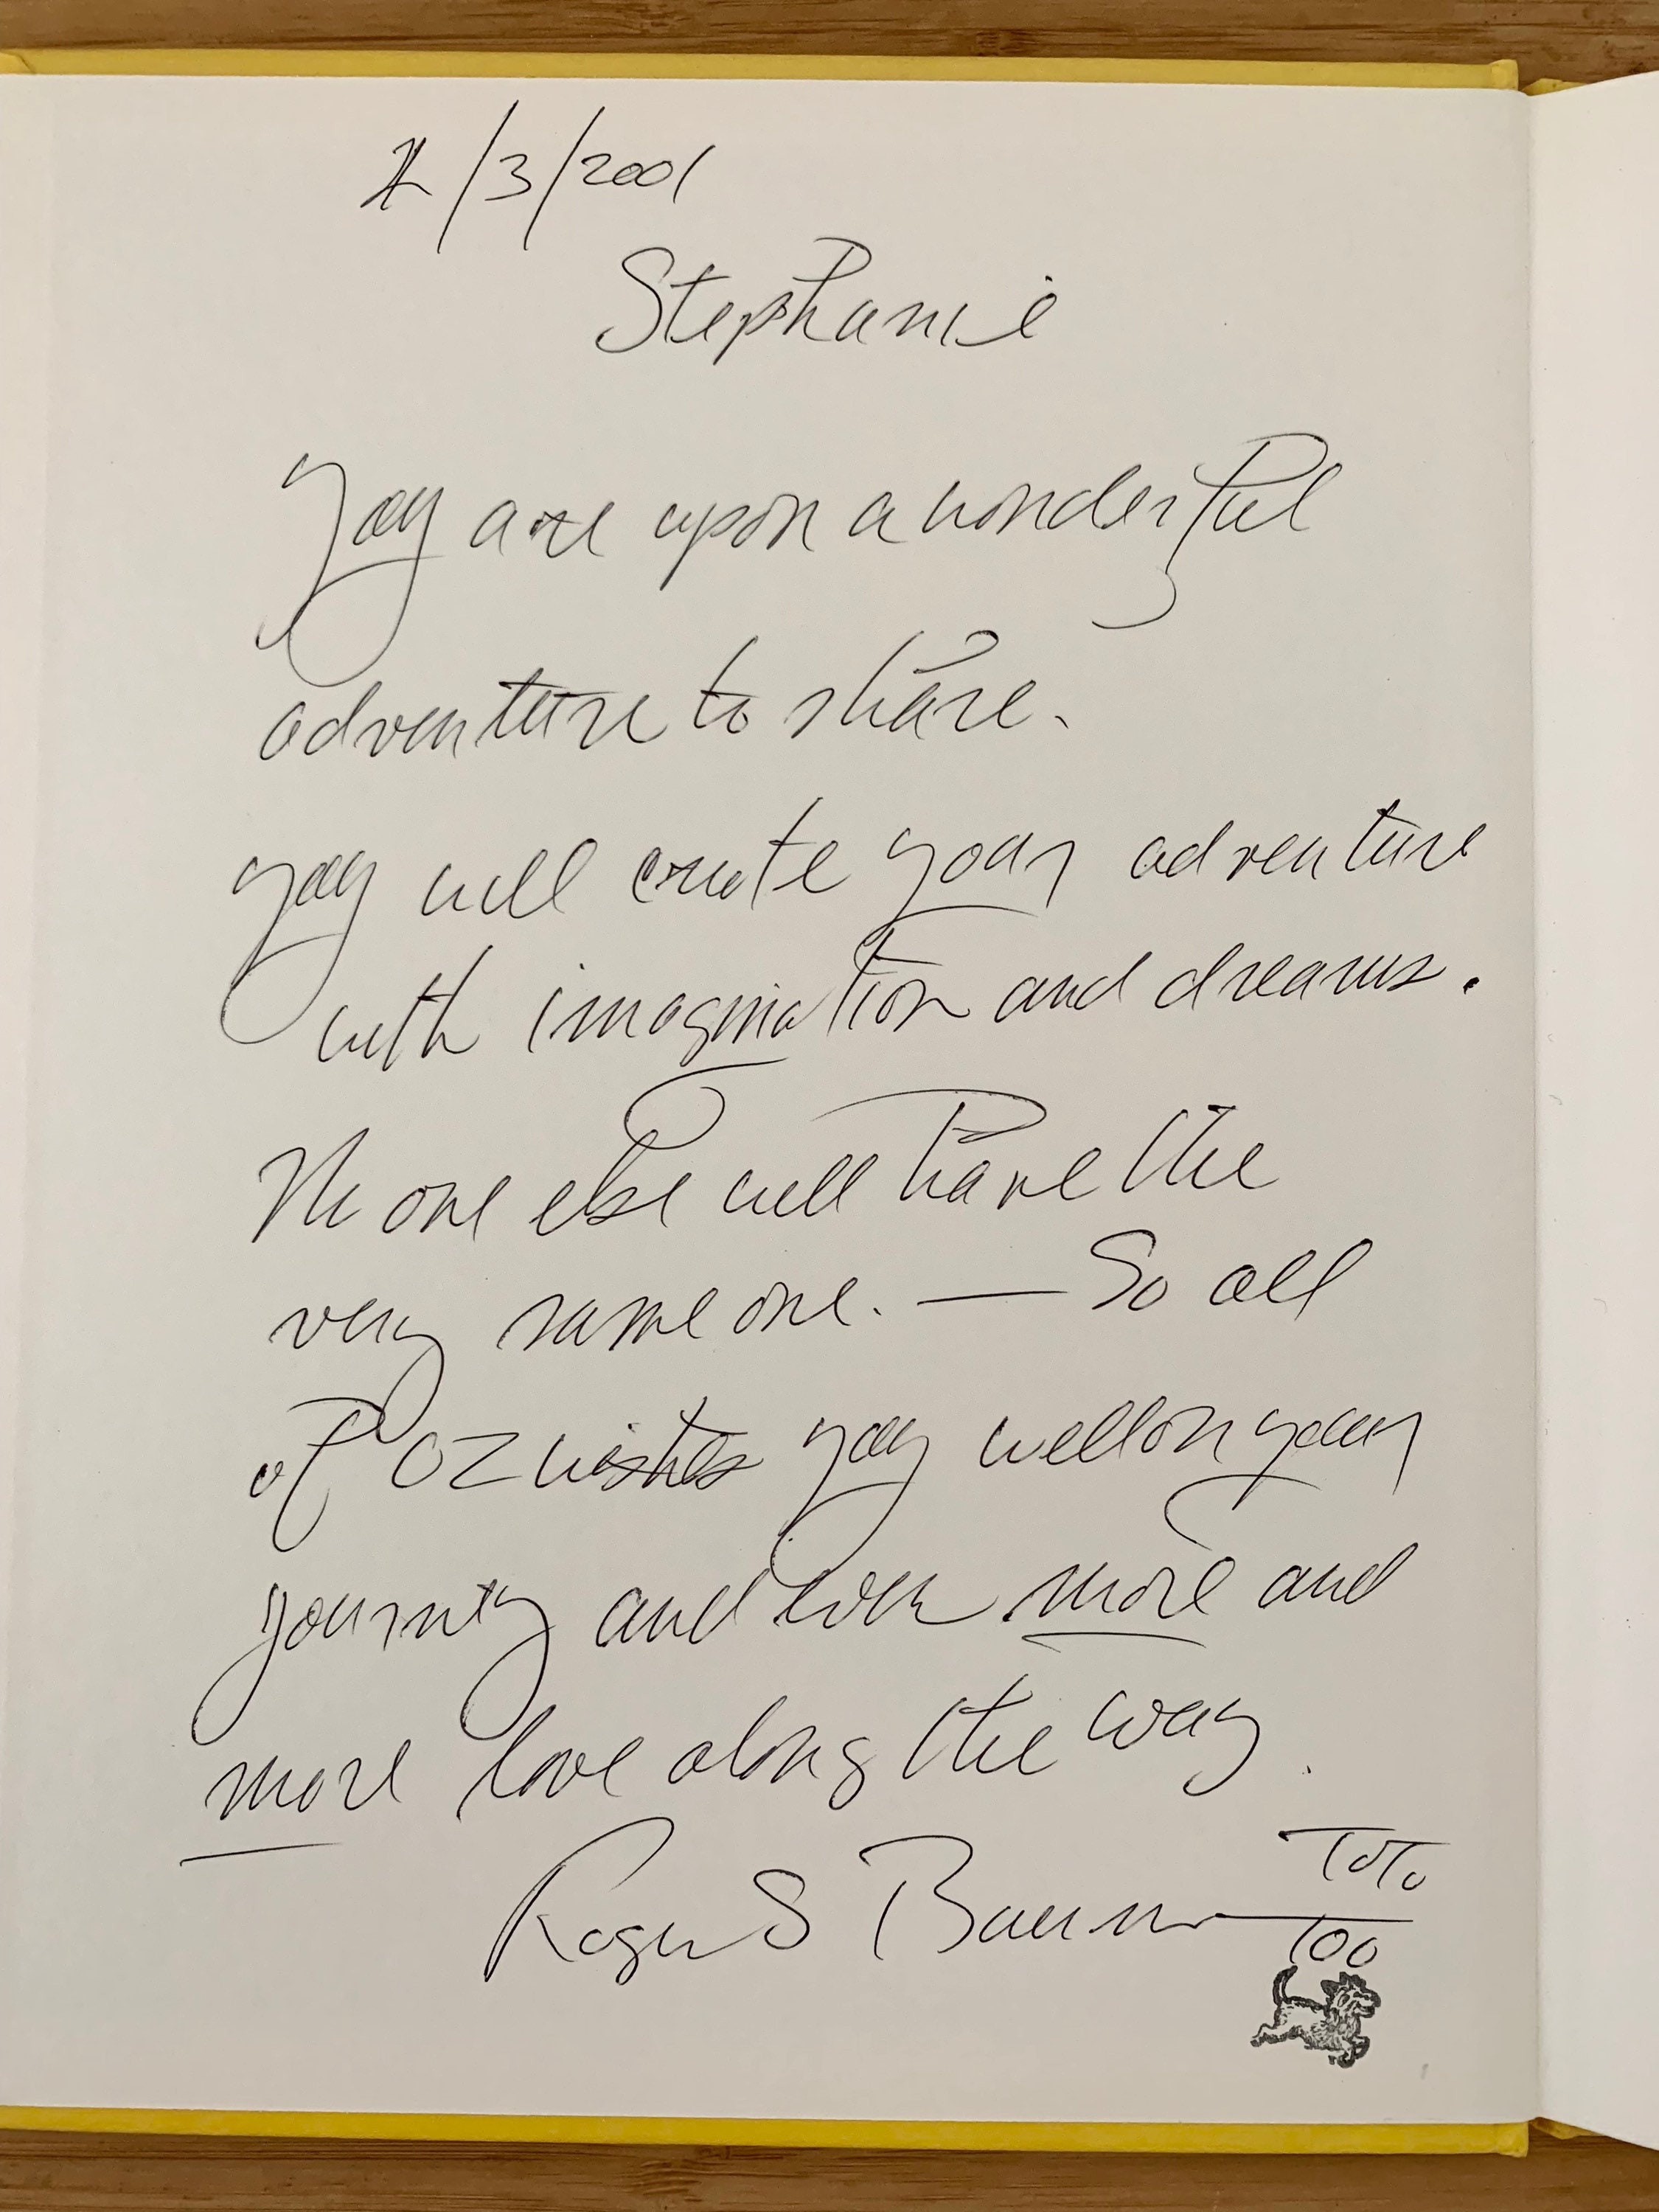 /3/2001
Stephanie
You are upon a wonderful
adventure to share.
You will create your adventure
with imagination and dreams.
No one else will have the
very same one. — So all
of OZ wishes you well on your
journey and even more and
more love along the way.
Roger S Baum TOTO
TOO